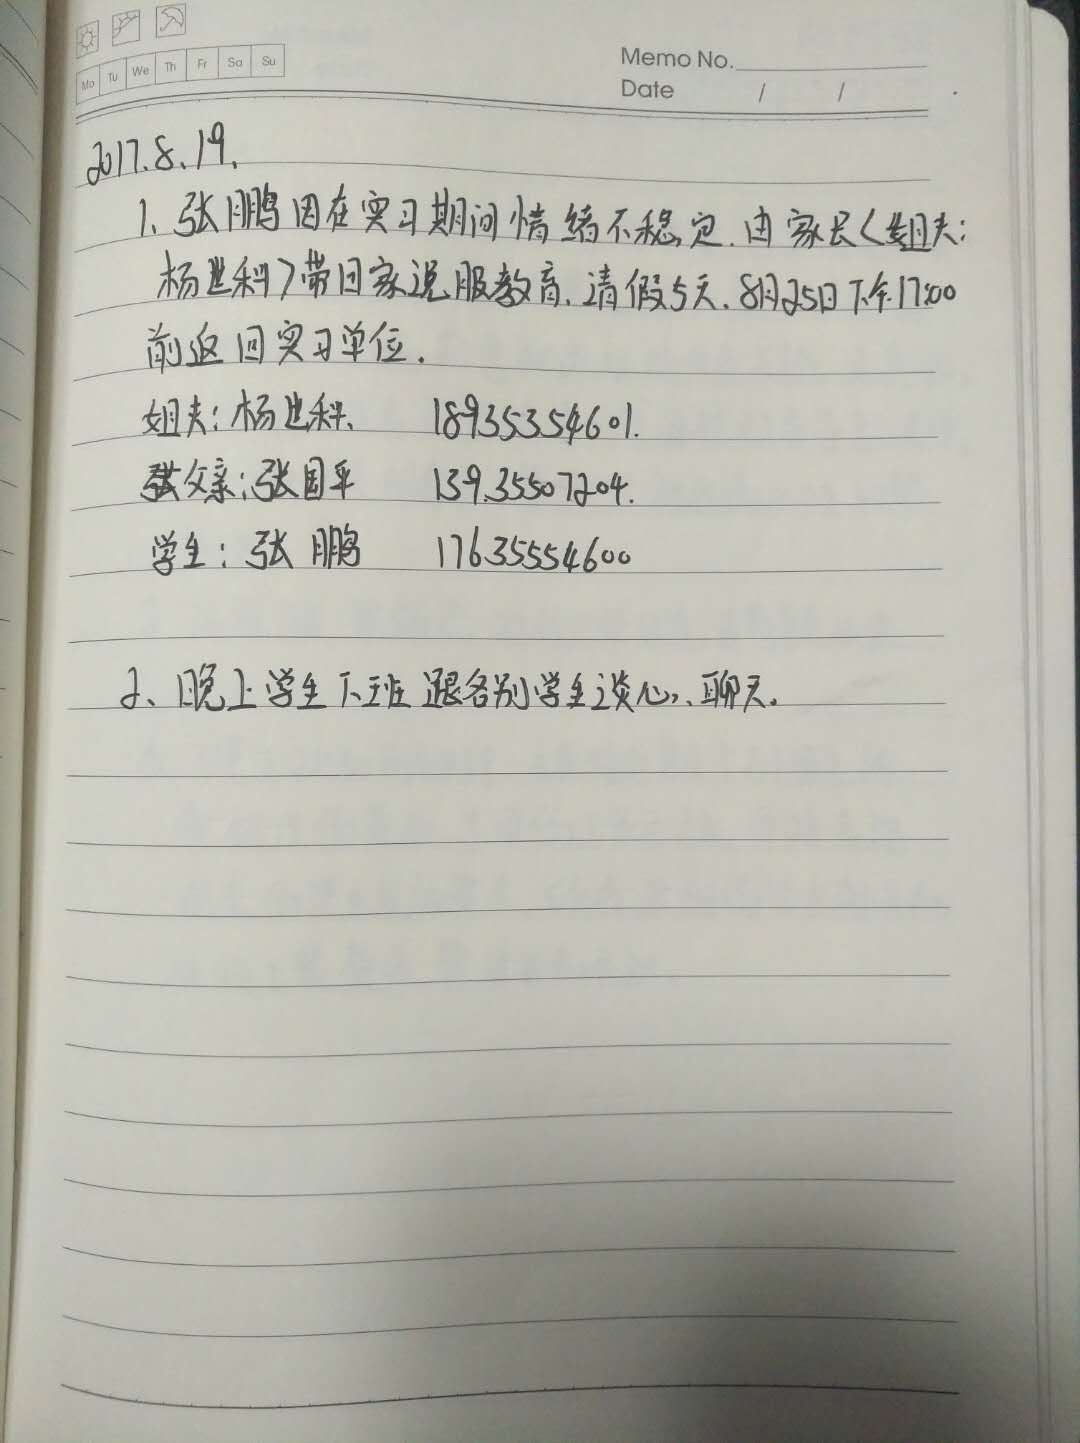 Mo Tu We Th Fr Sa Su
Memo No.
Date / /
2017.8.19.
1、张鹏因在实习期间情绪不稳定.由家长<姐夫:
杨世科>带回家说服教育.请假5天.8月25日下午17:00
前返回实习单位.
姐夫:杨世科、 18935354601.
张父亲:张国平 13935507204.
学生:张鹏 17635554600
2、晚上学生下班跟各别学生谈心、聊天.